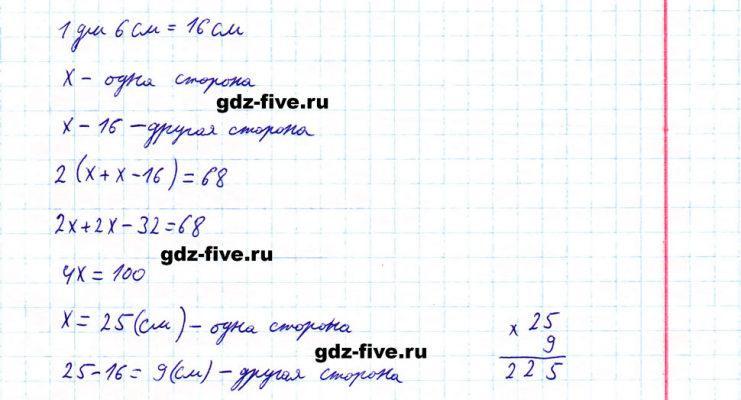 1 дм 6 см = 16 см
x – одна сторона
gdz-five.ru
x – 16 – другая сторона
2 (x + x – 16) = 68
2x + 2x – 32 = 68
gdz-five.ru
4x = 100
x = 25 (см) – одна сторона
gdz-five.ru
25 – 16 = 9 (см) – другая сторона
x 25
9
225